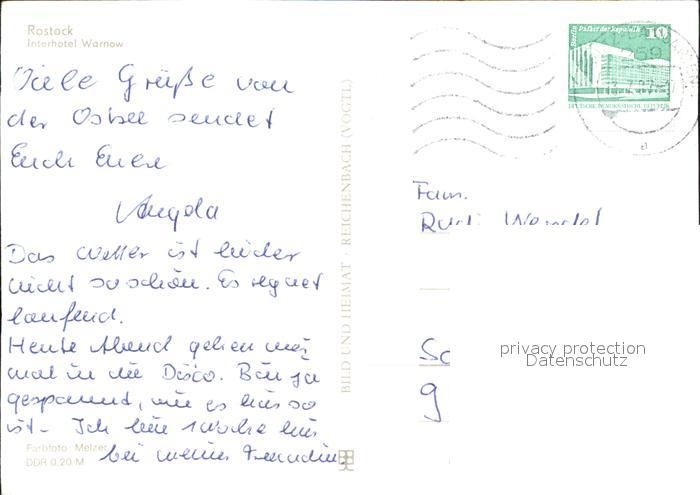 Rostock
Interhotel Warnow
Viele Grüße von
der Ostsee sendet
Euch Eure
Angela
Das Wetter ist leider
nicht so schön. Es regnet
laufend.
Heute Abend gehen wir
mal in die Disco. Bin ja
gespannt, wie es hier so
ist. Ich bin 1 Woche hier
bei meiner Freundin.
Farbfoto: Melzer
DDR 0,20 M
BILD UND HEIMAT · REICHENBACH (VOGTL)
Berlin Palast der Republik 10
DEUTSCHE DEMOKRATISCHE REPUBLIK
Fam.
Rudi
privacy protection
Datenschutz